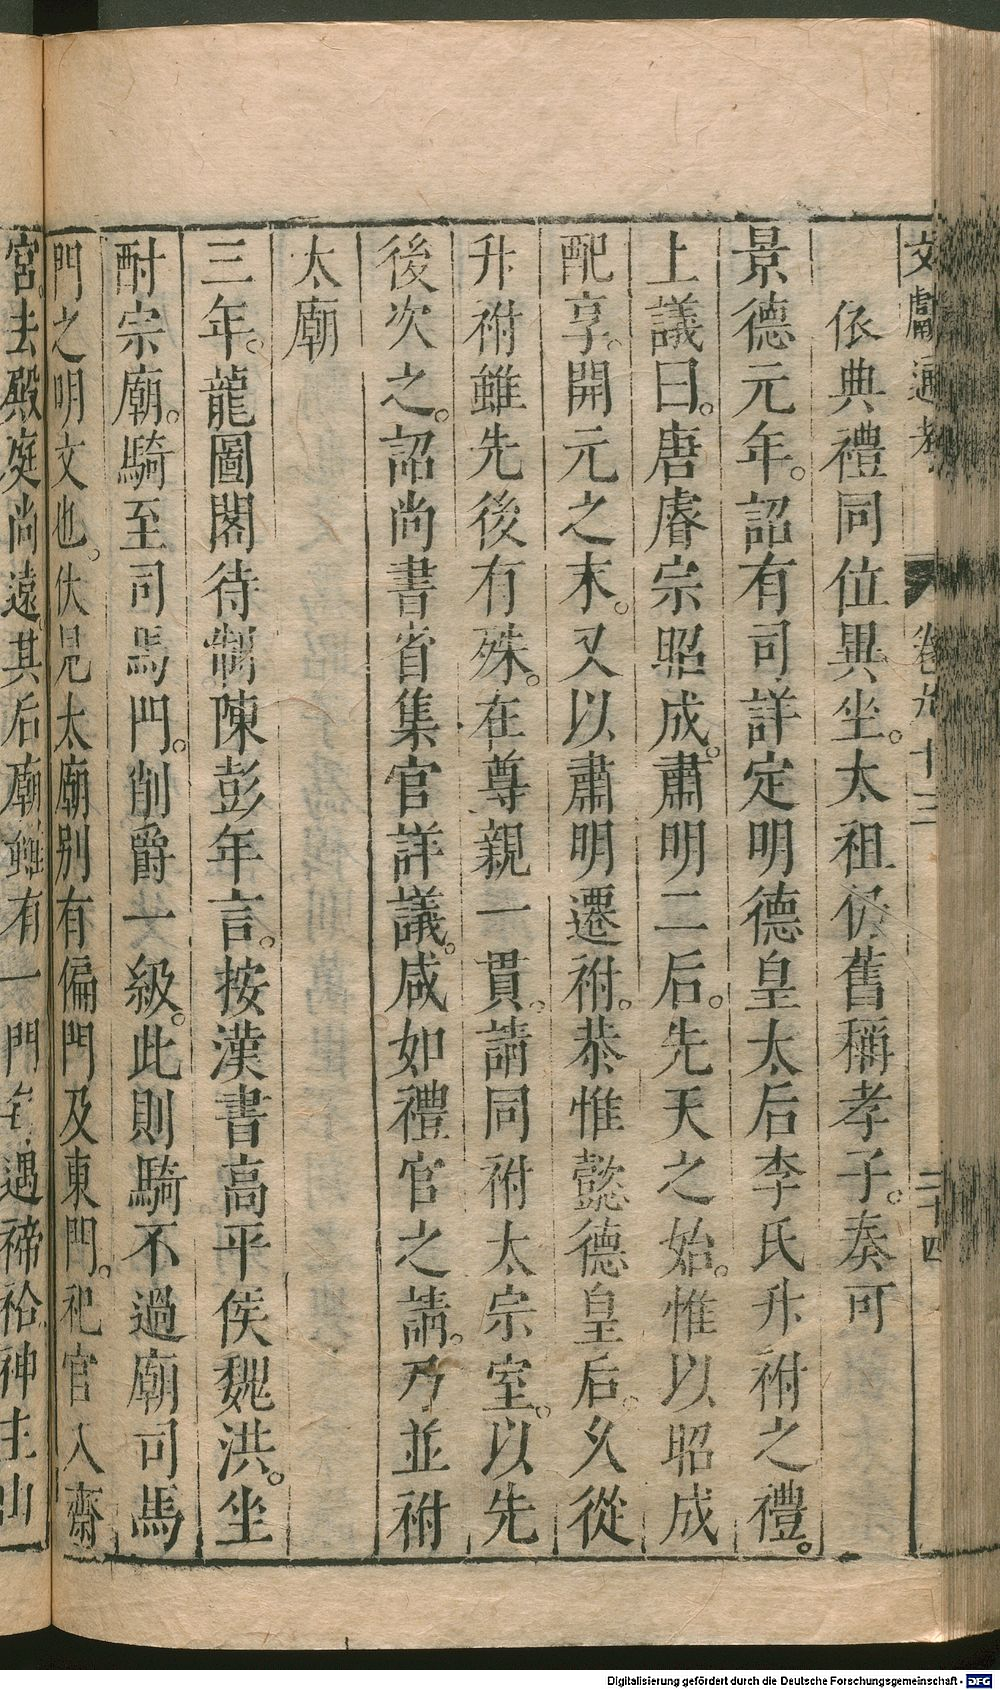 文獻通考 卷九十三 二十四
依典禮同位異坐。太祖仍舊稱孝子。奏可
景德元年。詔有司詳定明德皇太后李氏升祔之禮。
上議曰。唐睿宗昭成。肅明二后。先天之始。惟以昭成
配享。開元之末。又以肅明遷祔。恭惟懿德皇后。久從
升祔雖先後有殊。在尊親一貫。請同祔太宗室。以先
後次之。詔尚書省集官詳議。咸如禮官之請。乃並祔
太廟
三年。龍圖閣待制陳彭年言。按漢書高平侯魏洪。坐
酎宗廟。騎至司馬門。削爵一級。此則騎不過廟司馬
門之明文也。伏見太廟別有偏門及東門。祀官入齋
宮。去殿庭尚遠。其后廟雖有一門每遇禘祫。神主出
Digitalisierung gefördert durch die Deutsche Forschungsgemeinschaft - DFG